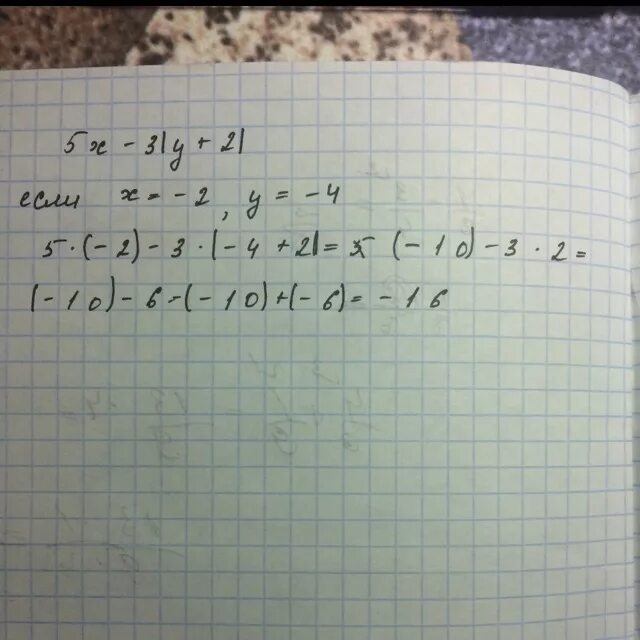 5x - 3|y + 2|
если x = -2, y = -4
5·(-2) - 3·|-4 + 2| = (-10) - 3·2 =
(-10) - 6 - (-10) + (-6) = -16